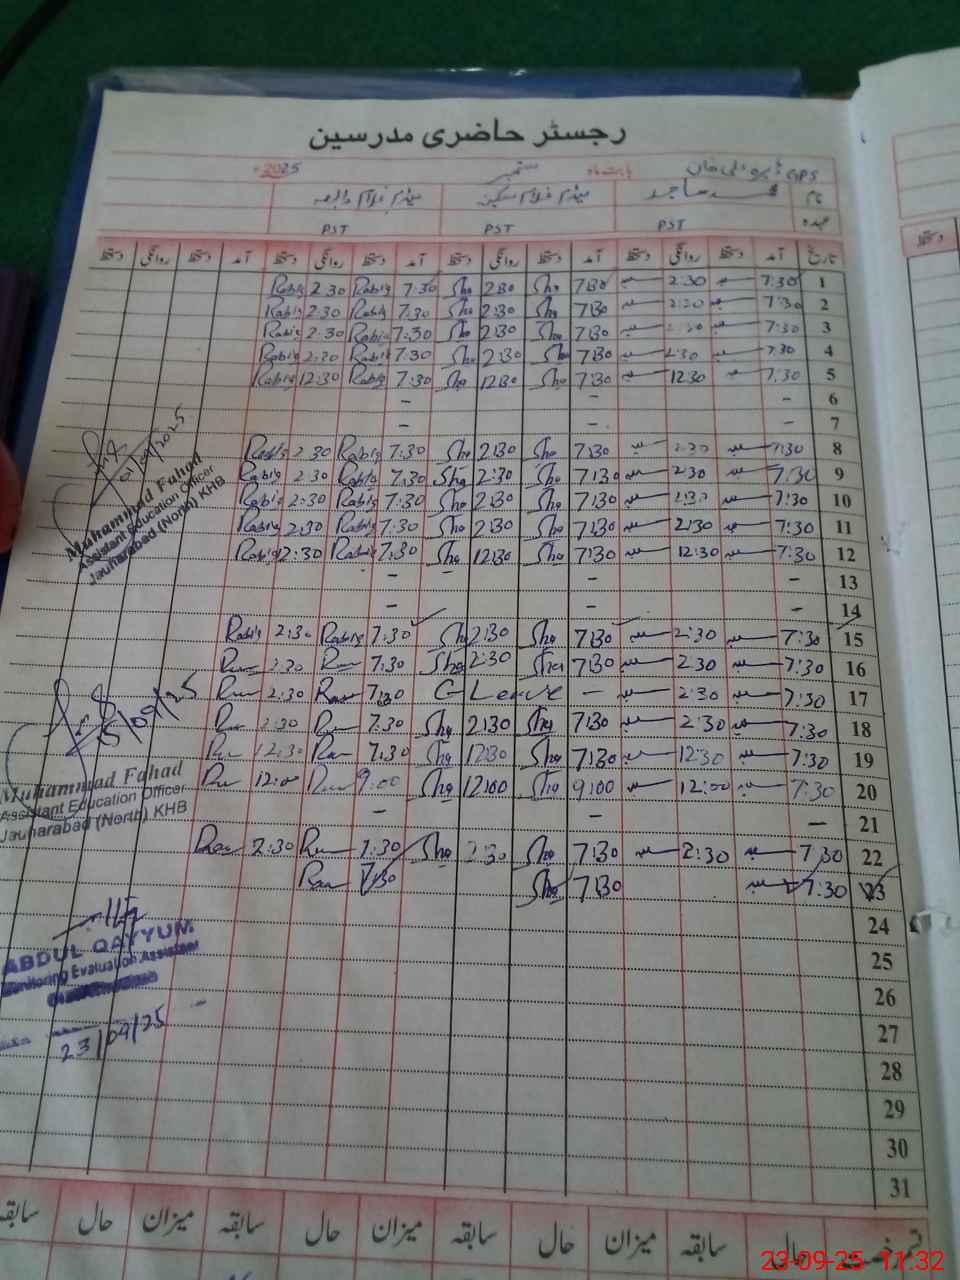 رجسٹر حاضری مدرسین
GPS خان بابت ماہ ستمبر 2025
نام ساجد میڈم غلام سکینہ میڈم غلام رابعہ
عہدہ PST PST PST
تاریخ آمد دستخط روانگی دستخط آمد دستخط روانگی دستخط آمد دستخط روانگی دستخط آمد دستخط روانگی دستخط
1 7:30 2:30 7:30 Sha 2:30 Sha 7:30 Rabia 2:30 Rabia
2 7:30 2:30 7:30 Sha 2:30 Sha 7:30 Rabia 2:30 Rabia
3 7:30 2:30 7:30 Sha 2:30 Sha 7:30 Rabia 2:30 Rabia
4 7:30 2:30 7:30 Sha 2:30 Sha 7:30 Rabia 2:30 Rabia
5 7:30 12:30 7:30 Sha 12:30 Sha 7:30 Rabia 12:30 Rabia
6 - - -
7 - - -
8 7:30 2:30 7:30 Sha 2:30 Sha 7:30 Rabia 2:30 Rabia
9 7:30 2:30 7:30 Sha 2:30 Sha 7:30 Rabia 2:30 Rabia
10 7:30 2:30 7:30 Sha 2:30 Sha 7:30 Rabia 2:30 Rabia
11 7:30 2:30 7:30 Sha 2:30 Sha 7:30 Rabia 2:30 Rabia
12 7:30 12:30 7:30 Sha 12:30 Sha 7:30 Rabia 12:30 Rabia
13 - - - -
14 - - -
15 7:30 2:30 7:30 Sha 2:30 Sha 7:30 Rabia 2:30 Rabia
16 7:30 2:30 7:30 Sha 2:30 Sha 7:30 2:30
17 7:30 2:30 - C Leave 7:30 2:30
18 7:30 2:30 7:30 Sha 2:30 Sha 7:30 2:30
19 7:30 12:30 7:30 Sha 12:30 Sha 7:30 12:30
20 7:30 12:00 9:00 Sha 12:00 Sha 9:00 12:00
21 - - -
22 7:30 2:30 7:30 Sha 2:30 Sha 7:30 2:30
23 7:30 7:30 Sha 7:30
24
25
26
27
28
29
30
31
Muhammad Fahad
Assistant Education Officer
Jauharabad (North) KHB
15/09/25
Muhammad Fahad
Assistant Education Officer
Jauharabad (North) KHB
ABDUL QAYYUM
Monitoring Evaluation Assistant
23/09/25
قسم رخصت حال سابقہ میزان حال سابقہ میزان حال سابقہ میزان حال سابقہ
23-09-25 11:32